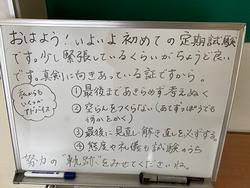 おはよう！いよいよ初めての定期試験
です。少し緊張しているくらいがちょうど良い
です。真剣に向きあっている証ですから。
私からも
いくつか
アドバイス
①最後まであきらめず考えぬく
②空らんをつくらない（あてずっぽうでも
何かをかく）
③最後に見直し解き直しを必ずする。
④態度や礼儀も試験のうち
努力の“軌跡”をみせてくださいね。